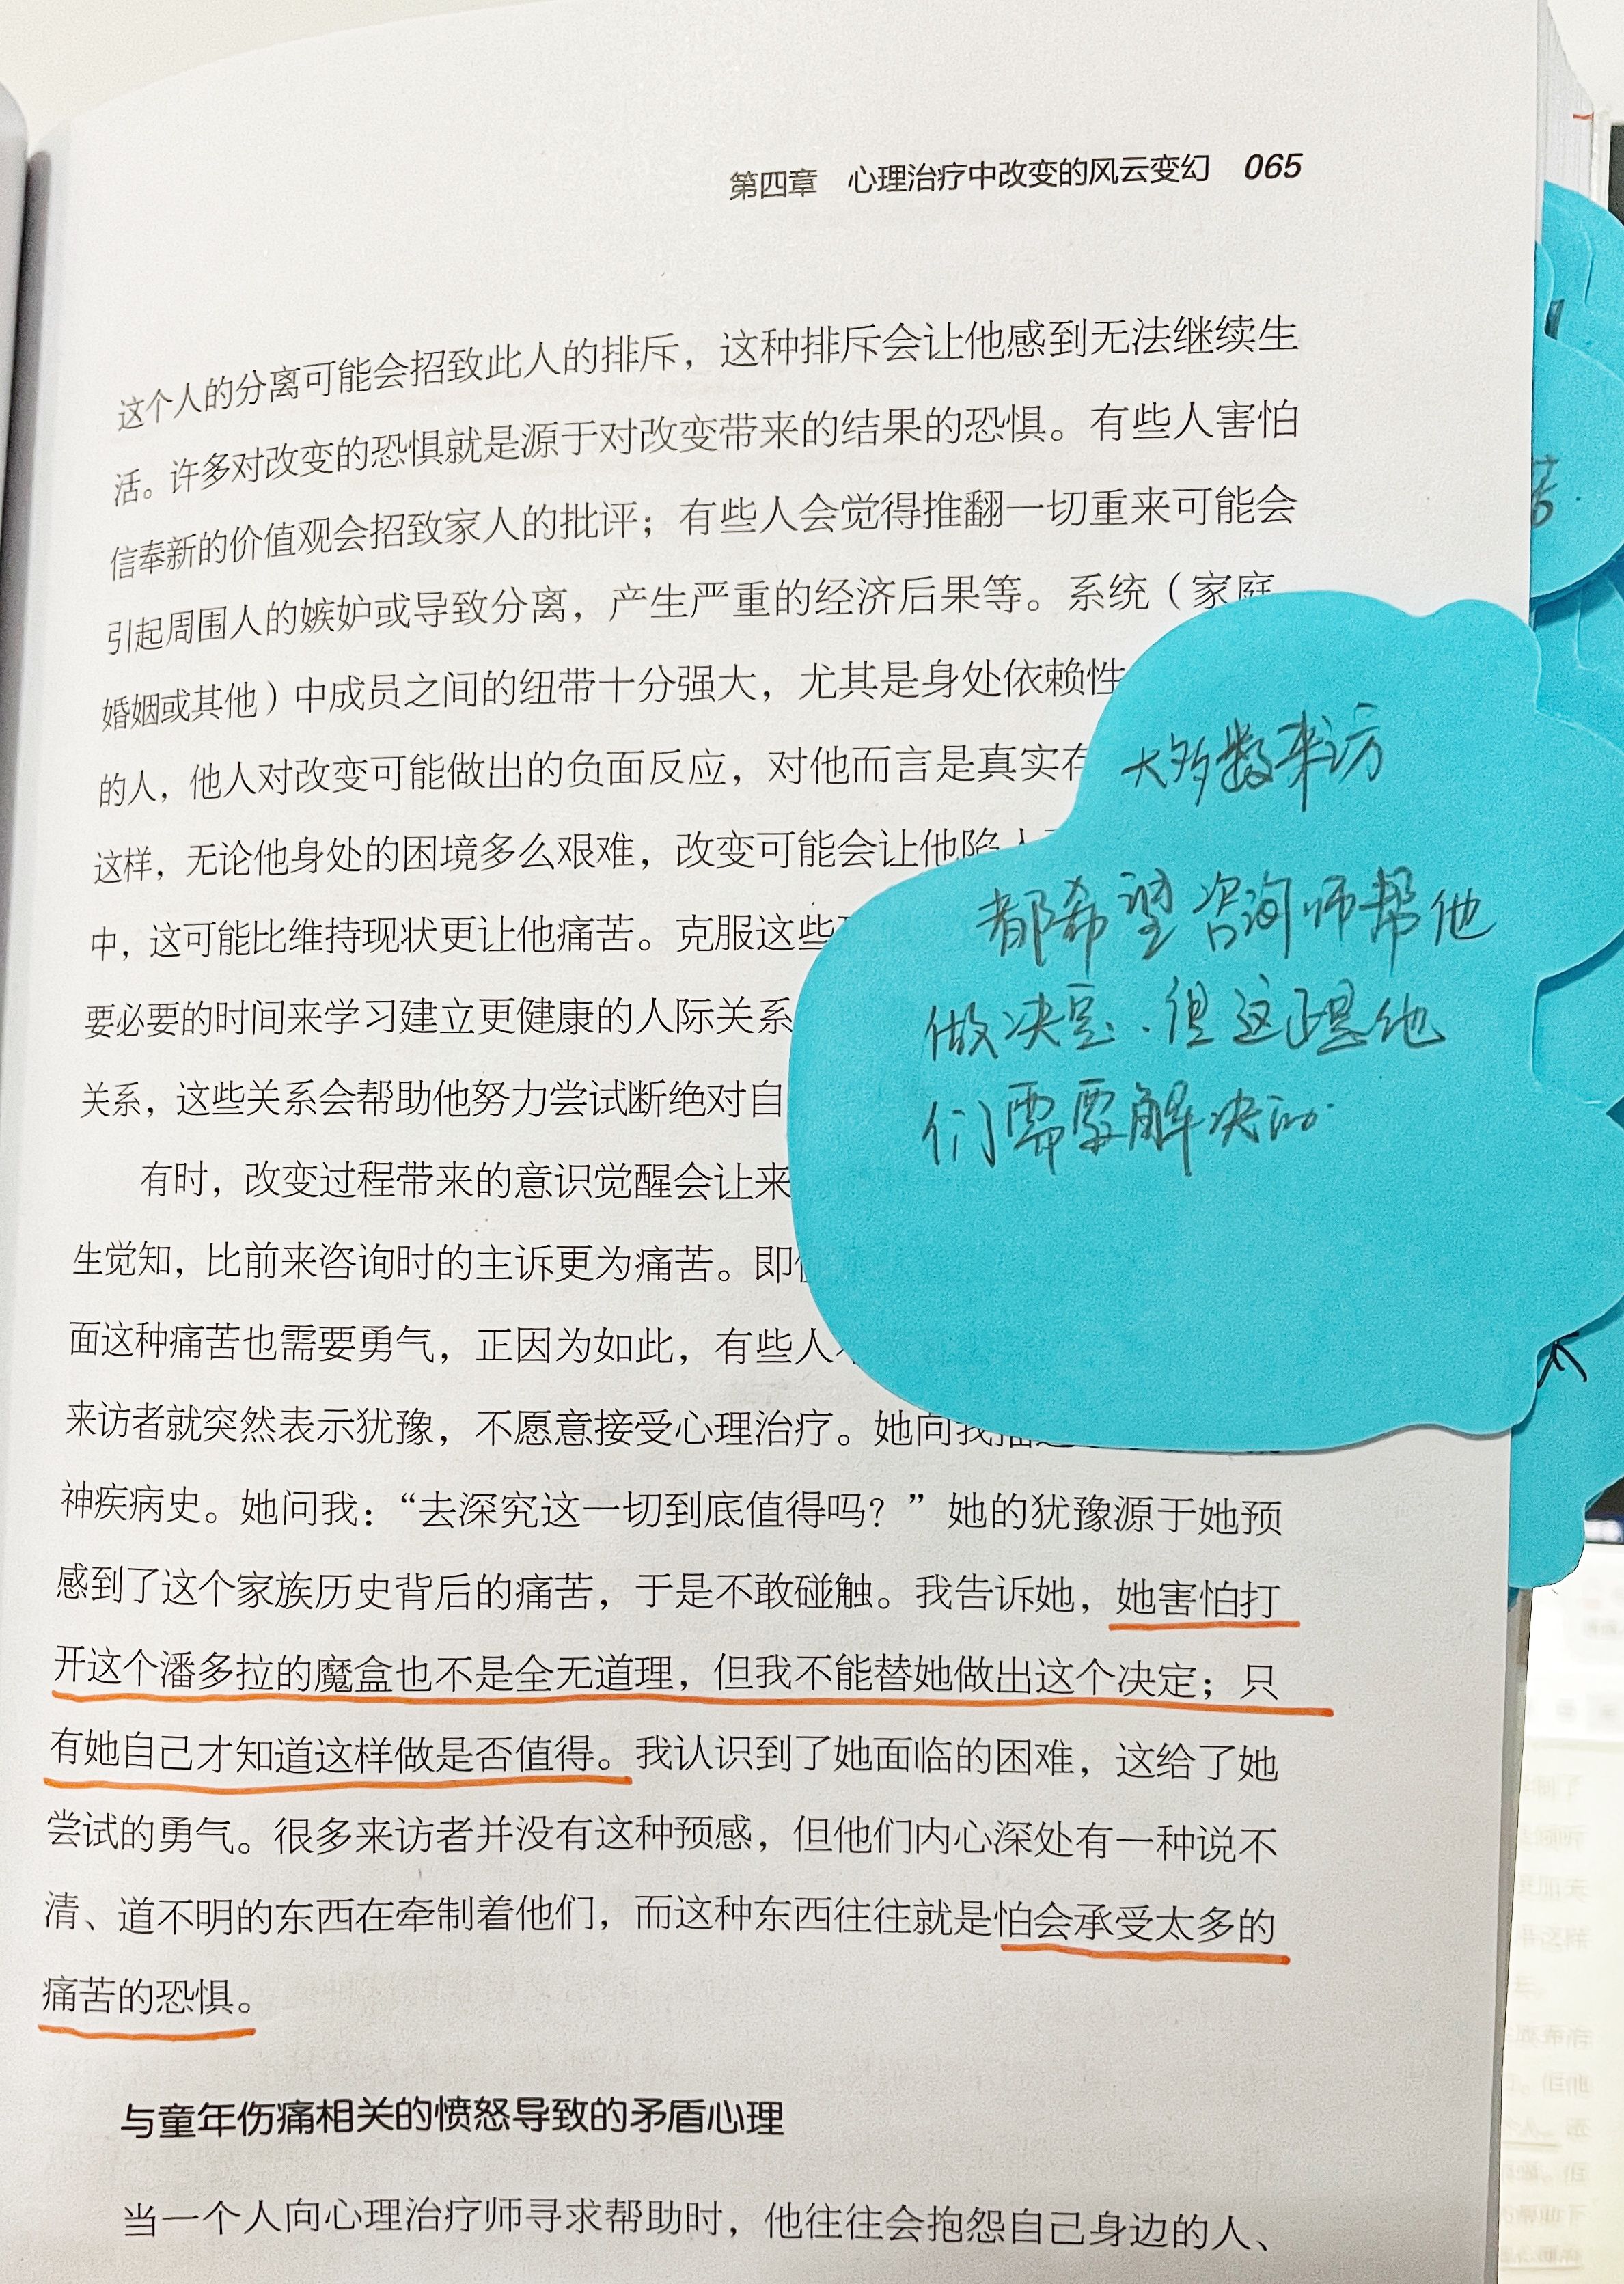 第四章 心理治疗中改变的风云变幻 065
这个人的分离可能会招致此人的排斥，这种排斥会让他感到无法继续生
活。许多对改变的恐惧就是源于对改变带来的结果的恐惧。有些人害怕
信奉新的价值观会招致家人的批评；有些人会觉得推翻一切重来可能会
引起周围人的嫉妒或导致分离，产生严重的经济后果等。系统（家庭、
婚姻或其他）中成员之间的纽带十分强大，尤其是身处依赖性
的人，他人对改变可能做出的负面反应，对他而言是真实存
这样，无论他身处的困境多么艰难，改变可能会让他陷入
中，这可能比维持现状更让他痛苦。克服这些
要必要的时间来学习建立更健康的人际关系
关系，这些关系会帮助他努力尝试断绝对自
有时，改变过程带来的意识觉醒会让来
生觉知，比前来咨询时的主诉更为痛苦。即
面这种痛苦也需要勇气，正因为如此，有些人
来访者就突然表示犹豫，不愿意接受心理治疗。她向我
神疾病史。她问我：“去深究这一切到底值得吗？”她的犹豫源于她预
感到了这个家族历史背后的痛苦，于是不敢碰触。我告诉她，她害怕打
开这个潘多拉的魔盒也不是全无道理，但我不能替她做出这个决定；只
有她自己才知道这样做是否值得。我认识到了她面临的困难，这给了她
尝试的勇气。很多来访者并没有这种预感，但他们内心深处有一种说不
清、道不明的东西在牵制着他们，而这种东西往往就是怕会承受太多的
痛苦的恐惧。
与童年伤痛相关的愤怒导致的矛盾心理
当一个人向心理治疗师寻求帮助时，他往往会抱怨自己身边的人、
大多数来访
都希望咨询师帮他
做决定．但这正是他
们需要解决的．